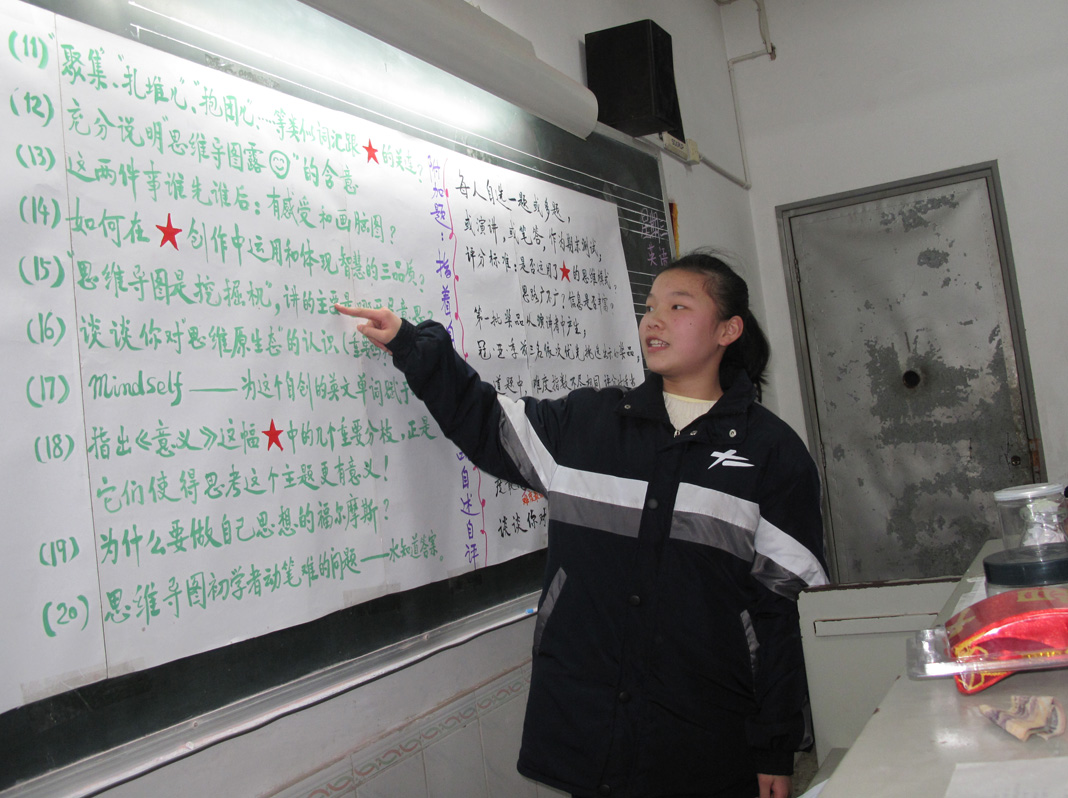 (11) "聚集"、"扎堆儿"、"抱团儿"……等类似词汇跟★的关连?
(12) 充分说明"思维导图露☺"的含意
(13) 这两件事谁先谁后:有感受和画脑图?
(14) 如何在★创作中运用和体现智慧的三品质?
(15) "思维导图是挖掘机",讲的主要是
(16) 谈谈你对"思维原生态"的认识
(17) mindself——为这个自创的英文单词
(18) 指出《意义》这幅★中的几个重要分枝,正是
它们使得思考这个主题更有意义!
(19) 为什么要做自己思想的福尔摩斯?
(20) 思维导图初学者动笔难的问题——水知道答案.
附加题:指着
自述自评
每人自选一题或多题,
或演讲,或笔答,作为期末测试,
评分标准:是否运用了★的思维模式,
思路广不广?信息是否丰富。
第一批奖品从演讲者中产生,
冠、亚、季前三名依次优先挑选
道题中,难度指数不尽相同
谈谈你对
英语